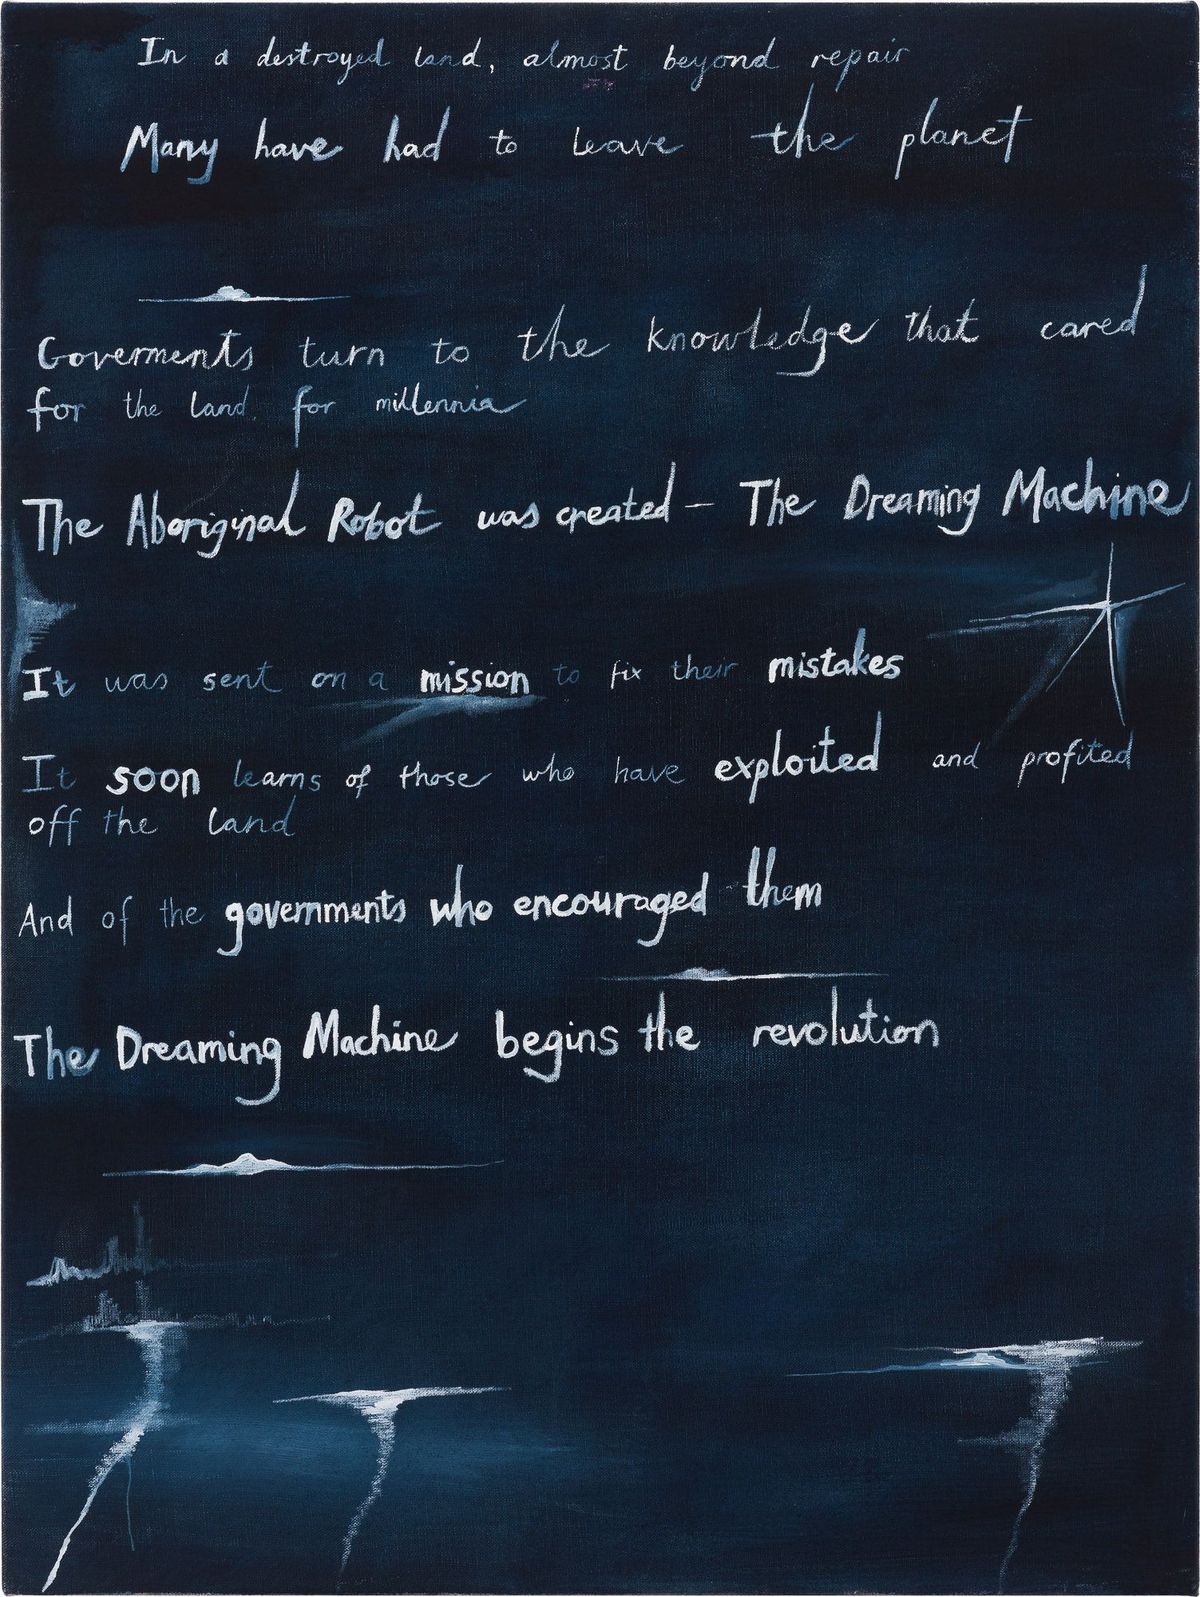 In a destroyed land, almost beyond repair
Many have had to leave the planet
Goverments turn to the knowledge that cared
for the land for millennia
The Aboriginal Robot was created – The Dreaming Machine
It was sent on a mission to fix their mistakes
It soon learns of those who have exploited and profited
off the land
And of the governments who encouraged them
The Dreaming Machine begins the revolution